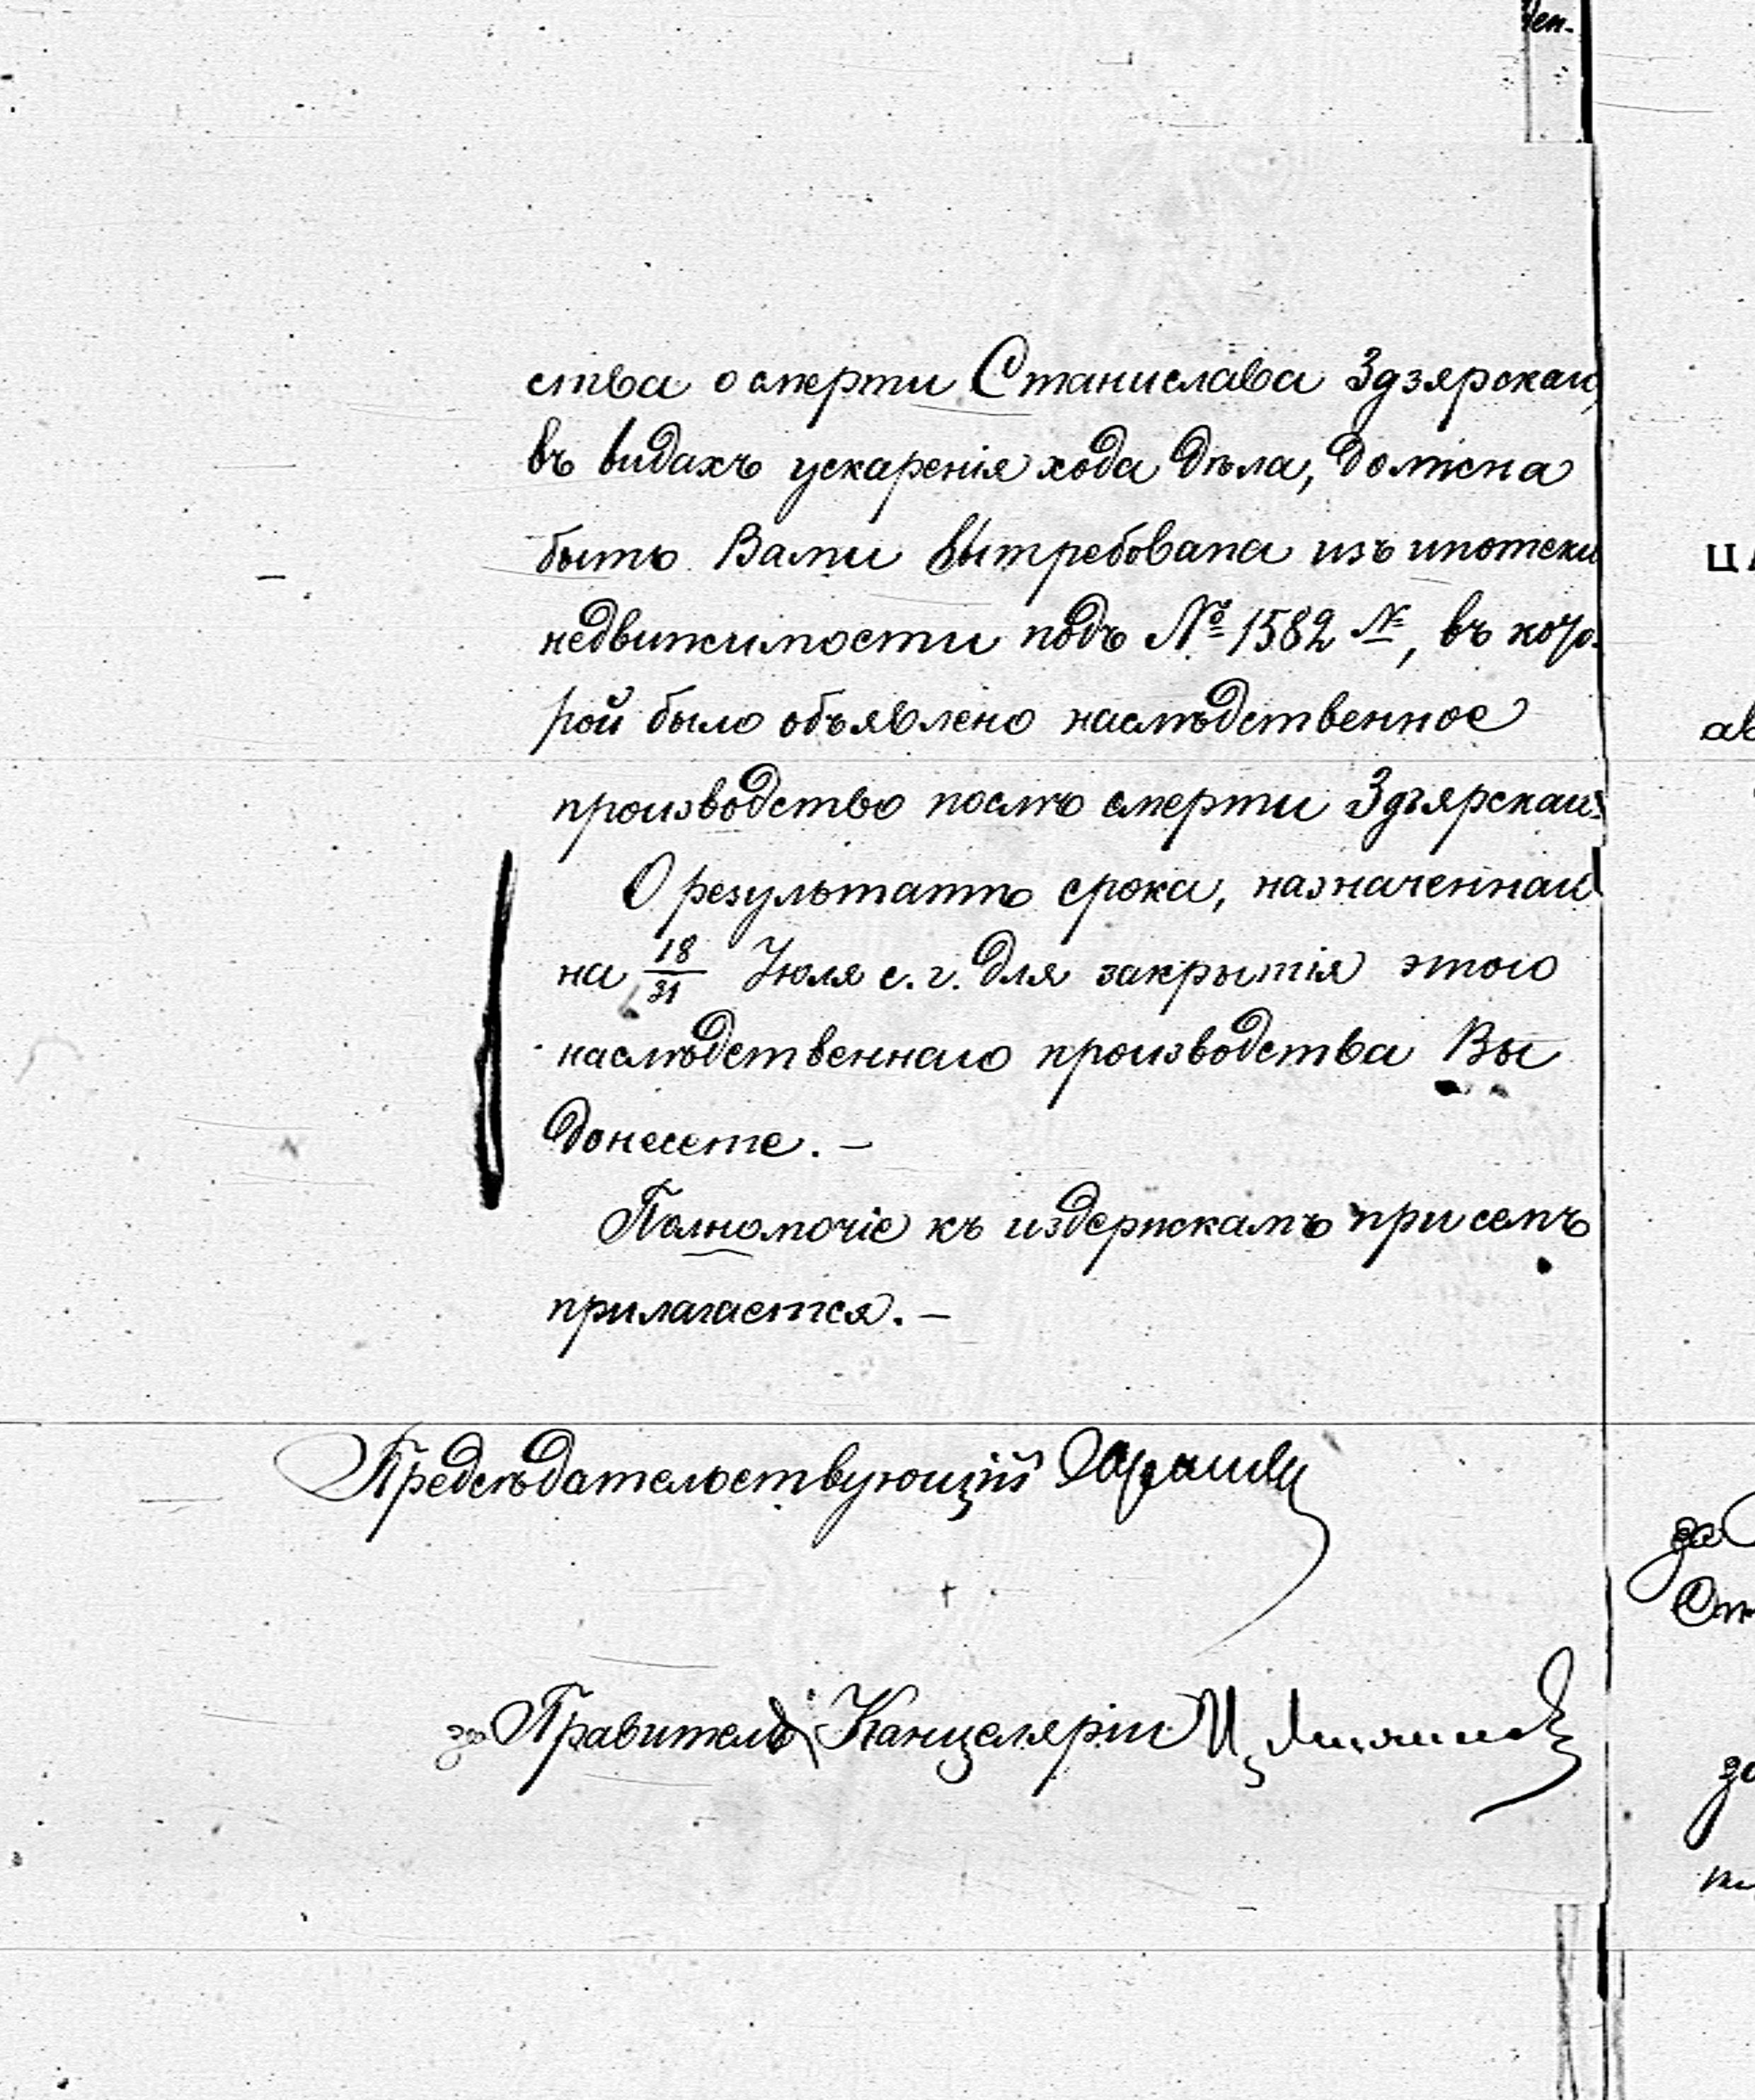 ства о смерти Станислава Здзярскаго,
въ видахъ ускаренія хода дѣла, должна
быть Вами вытребована изъ ипотеки
недвижимости подъ № 1582 N, въ кото-
рой было объявлено наслѣдственное
производство послѣ смерти Здзярскаго.
О результатѣ срока, назначеннаго
на 18/31 Іюля с. г. для закрытія этого
наслѣдственнаго производства Вы
донесете. —
Полномочіе къ издержкамъ при семъ
прилагается. —
Предсѣдательствующій
за Правитель Канцеляріи